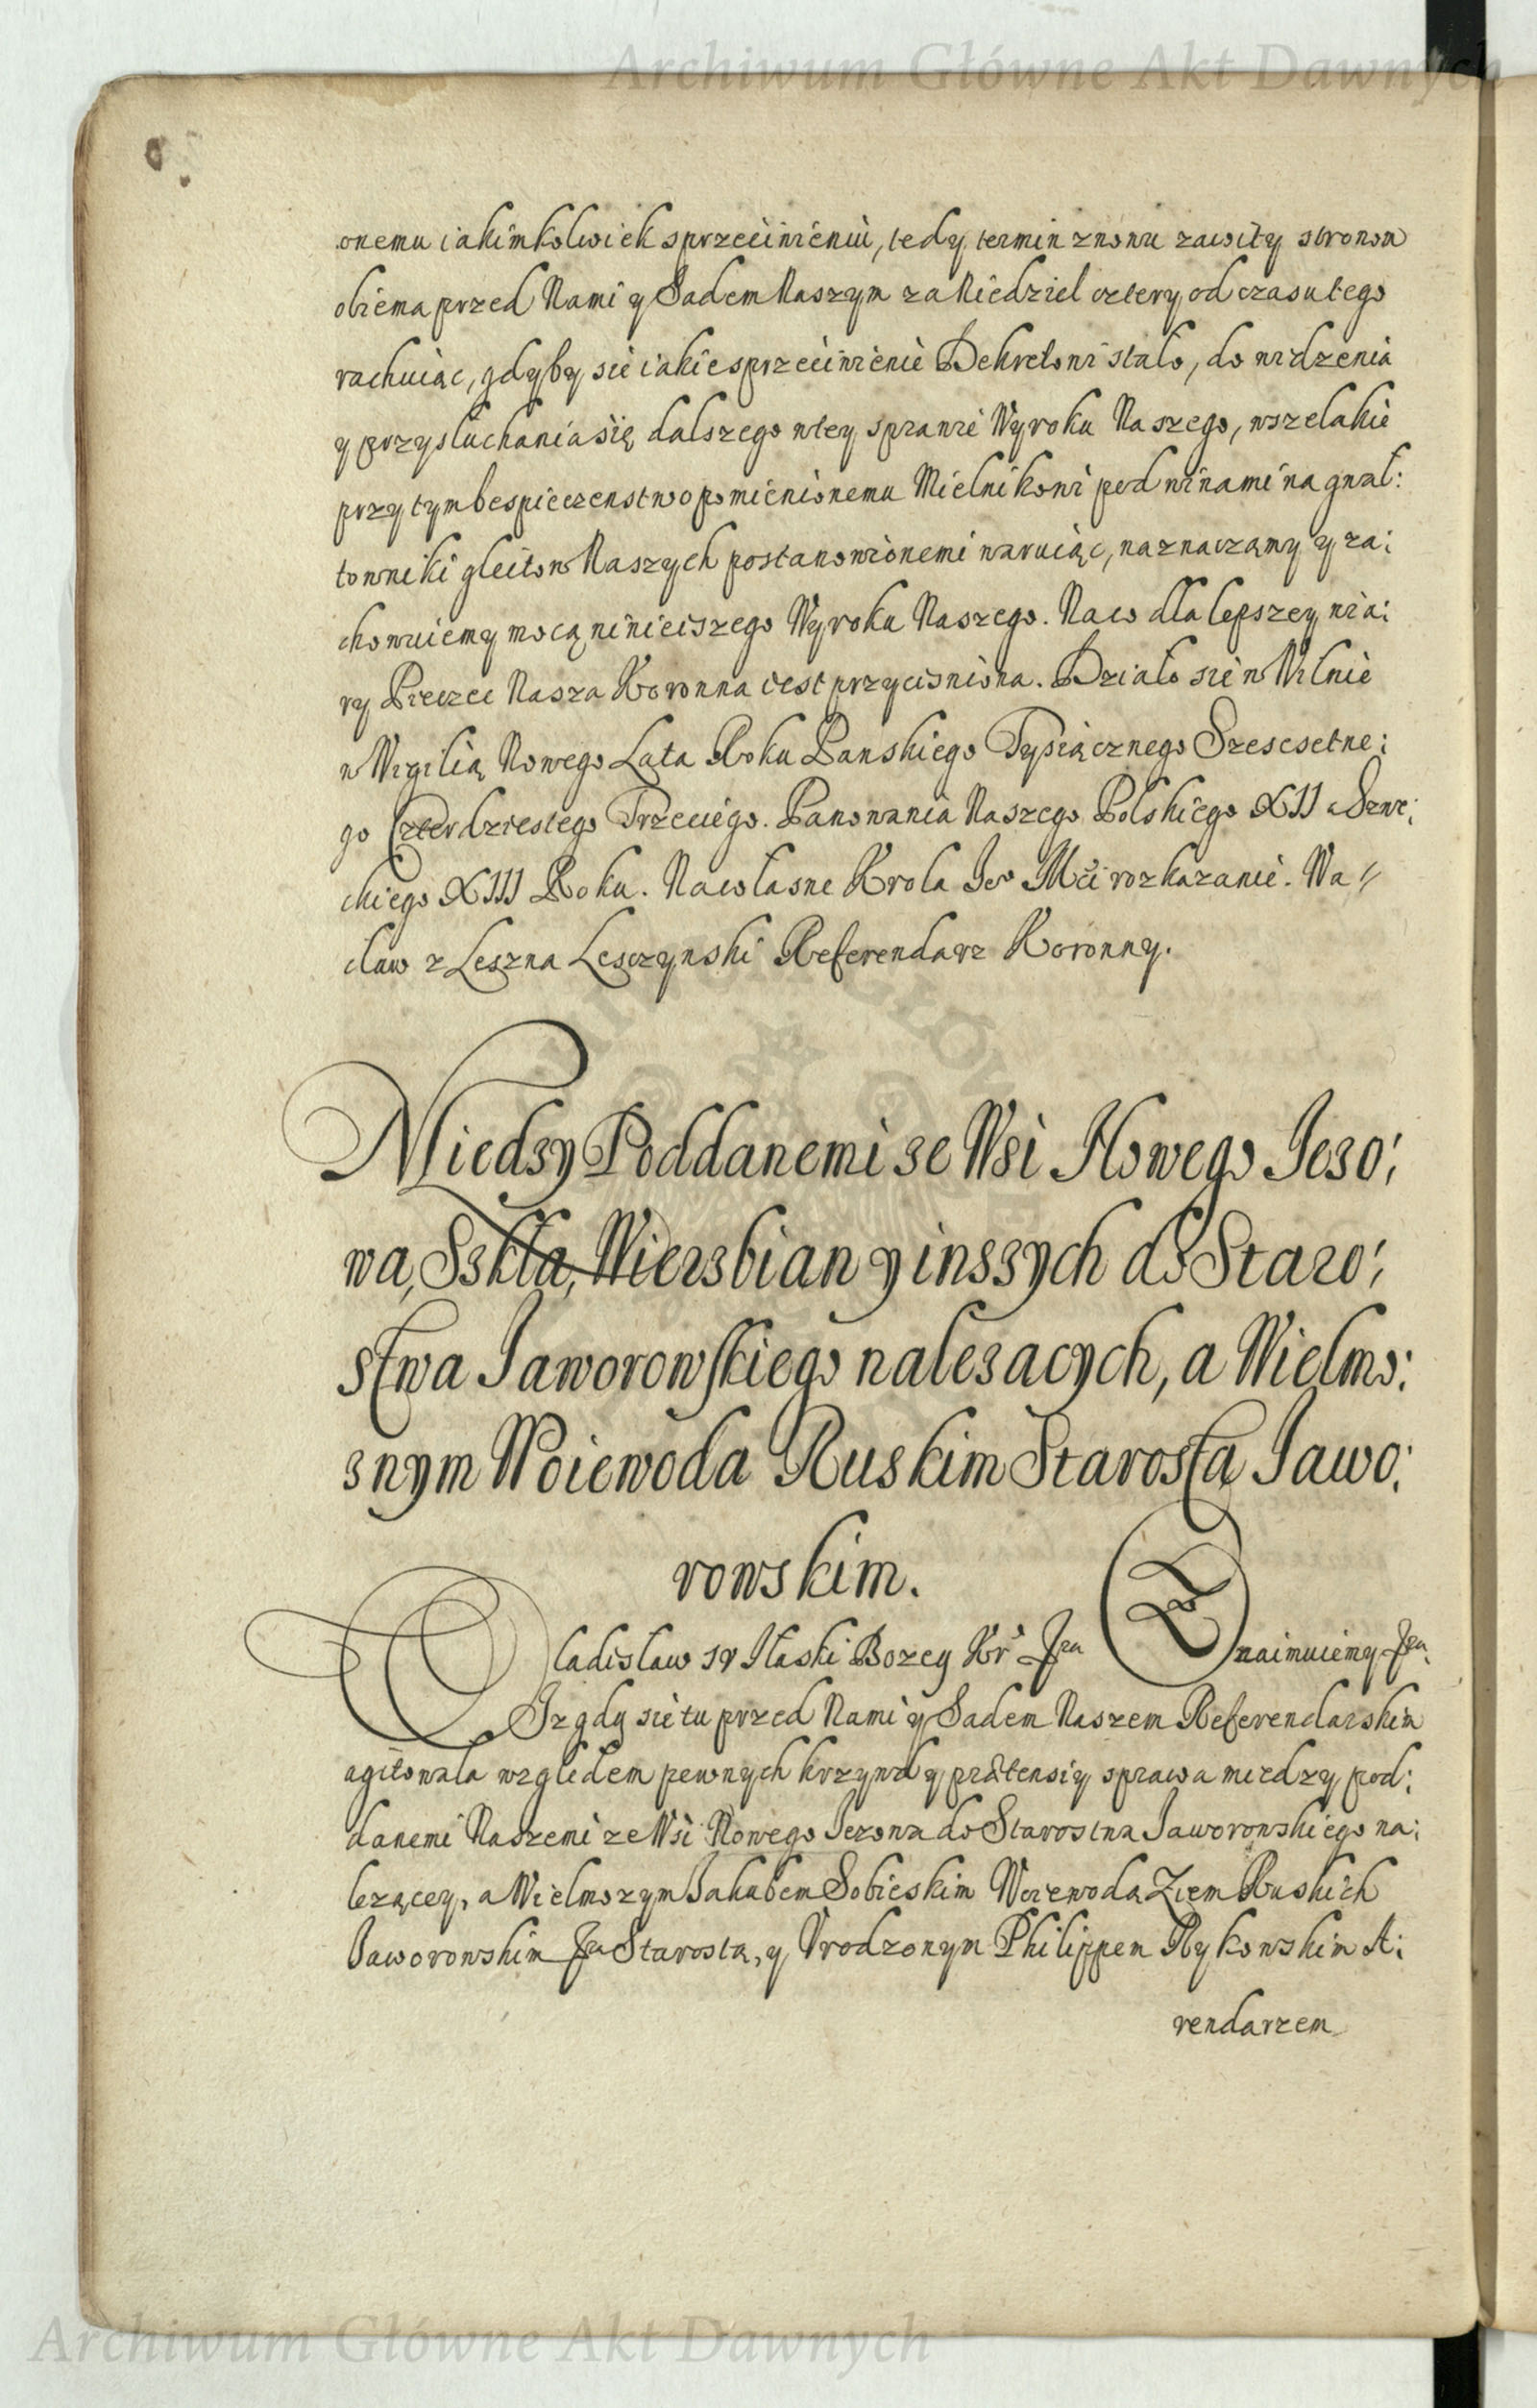 Archiwum Główne Akt Dawnych
onemu iakimkolwiek sprzeciwieniu, tedy termin znowu zawity stronom
obiema przed Nami y Sądem Naszym za Niedziel cztery od czasu tego
rachuiąc, gdyby się iakie sprzeciwienie Dekretowi stało, do widzenia
y przysłuchania się dalszego w tey sprawie Wyroku Naszego, wszelakie
przy tym bespieczenstwo pomienionemu Mielnikowi pod winami na gwał:
towniki gleitow Naszych postanowionemi waruiąc, naznaczamy y za:
chowuiemy mocą ninieiszego Wyroku Naszego. Na co dla lepszey wia:
ry Pieczec Nasza Koronna iest przycisniona. Działo się w Wilnie
w Wigilią Nowego Lata Roku Panskiego Tysiącznego Szescsetne:
go Czterdziestego Trzeciego. Panowania Naszego Polskiego XII a Szwe:
ckiego XIII Roku. Na własne Krola Jeo Mci rozkazanie. Wa//
cław z Leszna Lesczynski Referendarz Koronny.
Miedzy Poddanemi ze Wsi Nowego Jezo:
wa, Szkła, Wierzbian y inszych do Staro:
stwa Jaworowskiego nalezacych, a Wielmo:
znym Woiewoda Ruskim Starosta Jawo:
rowskim.
Wladislaw IV Z Łaski Bozey Kr Znaimuiemy
Iz gdy się tu przed Nami y Sądem Naszem Referendarskim
agitowała względem pewnych krzywd y prætensiy sprawa miedzy pod:
danemi Naszemi ze Wsi Nowego Jezowa do Starostwa Jaworowskiego na:
lezącey, a Wielmoznym Jakubem Sobieskim Woiewodą Ziem Ruskich
Jaworowskim Starostą, y Vrodzonym Philippem Rykowskim A:
rendarzem
Archiwum Główne Akt Dawnych